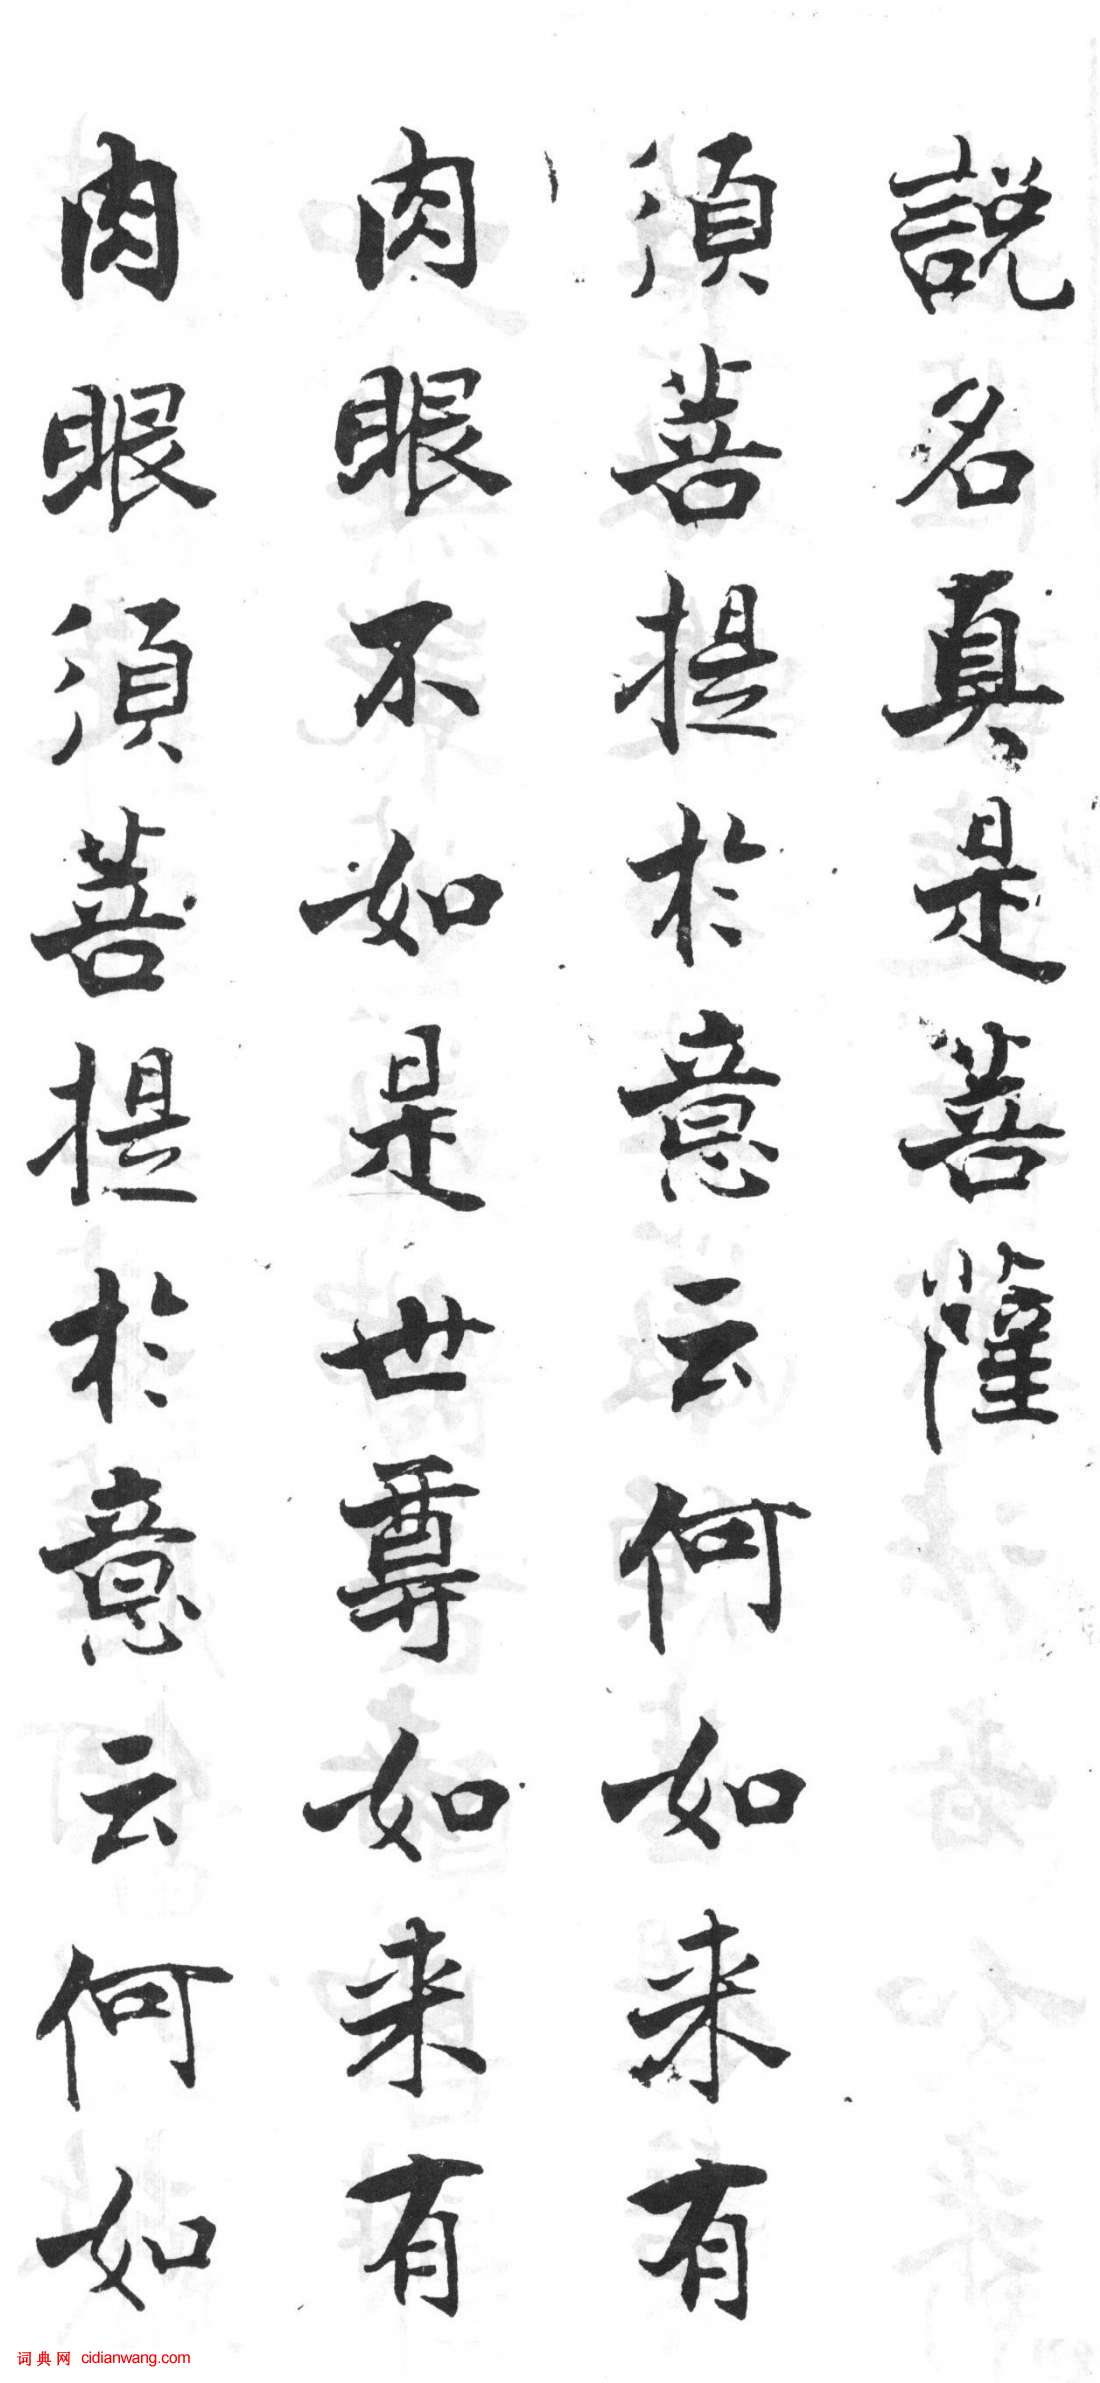 説名真是菩薩
須菩提於意云何如来有
肉眼不如是世尊如来有
肉眼須菩提於意云何如
词典网 cidianwang.com